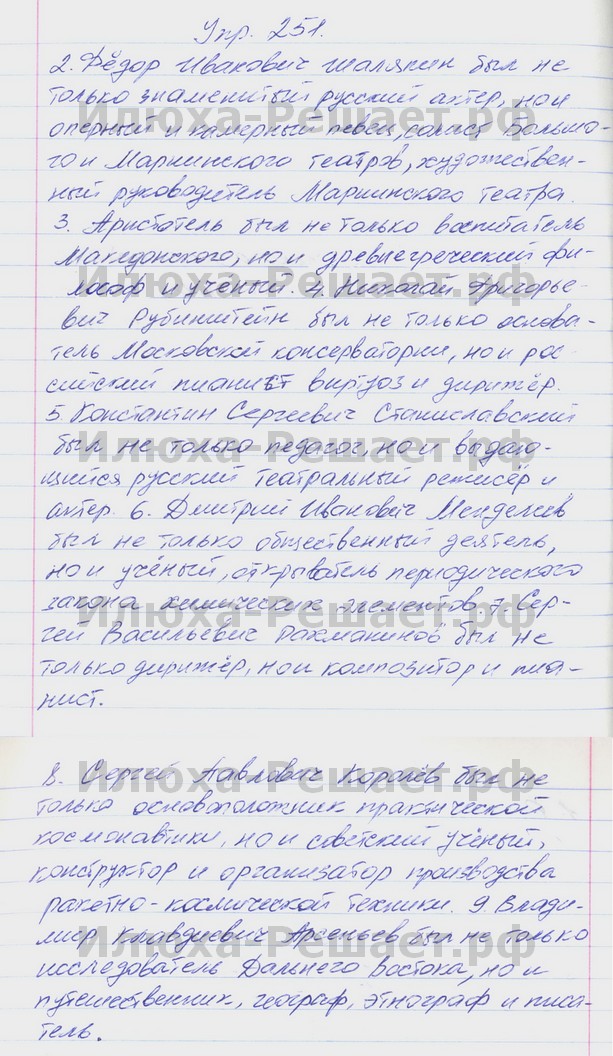 Упр. 251.
2. Фёдор Иванович Шаляпин был не
только знаменитый русский актер, но и
оперный и камерный певец, солист Большо-
го и Мариинского театров, художествен-
ный руководитель Мариинского театра.
3. Аристотель был не только воспитатель
Македонского, но и древнегреческий фи-
лософ и учёный. 4. Николай Григорье-
вич Рубинштейн был не только основа-
тель Московской консерватории, но и рос-
сийский пианист виртуоз и дирижёр.
5. Константин Сергеевич Станиславский
был не только педагог, но и выдаю-
щийся русский театральный режисёр и
актер. 6. Дмитрий Иванович Менделеев
был не только общественный деятель,
но и учёный, открыватель периодического
закона химических элементов. 7. Сер-
гей Васильевич Рахманинов был не
только дирижёр, но и композитор и пиа-
нист.
8. Сергей Павлович Королёв был не
только основоположник практической
космонавтики, но и советский учёный,
конструктор и организатор производства
ракетно-космической техники. 9. Влади-
мир Клавдиевич Арсеньев был не только
исследователь Дальнего Востока, но и
путешественник, географ, этнограф и писа-
тель.
Илюха-Решает.рф
Илюха-Решает.рф
Илюха-Решает.рф
Илюха-Решает.рф
Илюха-Решает.рф
Илюха-Решает.рф